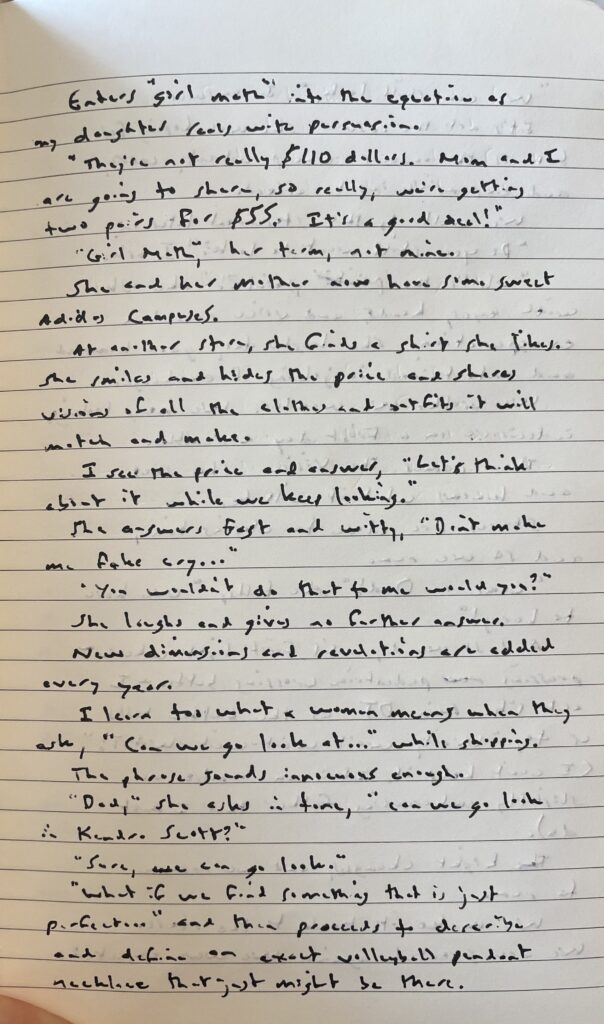 Enters "girl math" into the equation as
my daughter reels with persuasion.
"They're not really $110 dollars. Mom and I
are going to share, so really, we're getting
two pairs for $55. It's a good deal!"
"Girl Math," her term, not mine.
She and her mother now have some sweet
Adidas Campuses.
At another store, she finds a shirt she likes.
She smiles and hides the price and shares
visions of all the clothes and outfits it will
match and make.
I see the price and answer, "Let's think
about it while we keep looking."
She answers fast and witty, "Don't make
me fake cry..."
"You wouldn't do that to me would you?"
She laughs and gives no further answer.
New dimensions and revelations are added
every year.
I learn too what a women means when they
ask, "Can we go look at..." while shopping.
The phrase sounds innocuous enough.
"Dad," she asks in tone, "can we go look
in Kendra Scott?"
"Sure, we can go look."
"What if we find something that is just
perfect..." and then proceeds to describe
and define an exact volleyball pendant
necklace that just might be there.